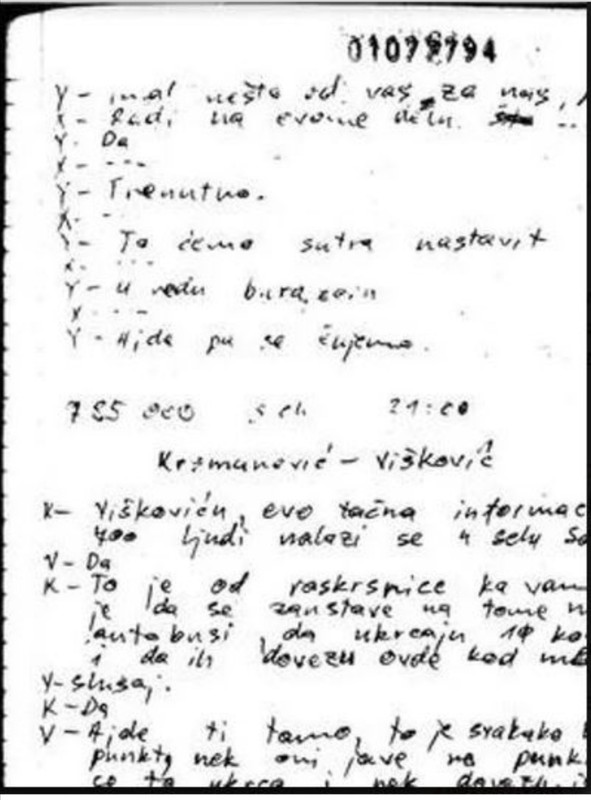 01077794
Y - imal nešto od vas za nas,
X - Radi na ovome delu.
Y - Da
X - ---
Y - Trenutno.
X - -
Y - To ćemo sutra nastavit
X - ---
Y - u redu burazain
X - ---
Y - Ajde pa se čujemo.
785 000 s ch 21:20
Krsmanović - Višković
K - Viškoviću, evo tačna informac
400 ljudi nalazi se u selu Sa
V - Da
K - To je od raskrsnice ka vam
je da se zaustave na tome
autobusi, da ukrcaju ko
i da ih dovezu ovde kod
V - slušaj.
K - Da
V - Ajde ti tamo, to je svakako
punkt, nek oni jave na punk
ukrca i nek dovezu